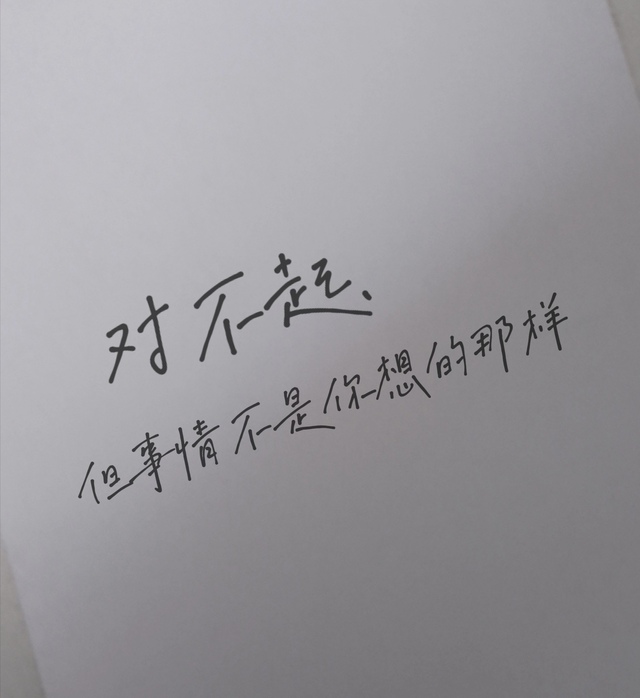 对不起、
但事情不是你想的那样